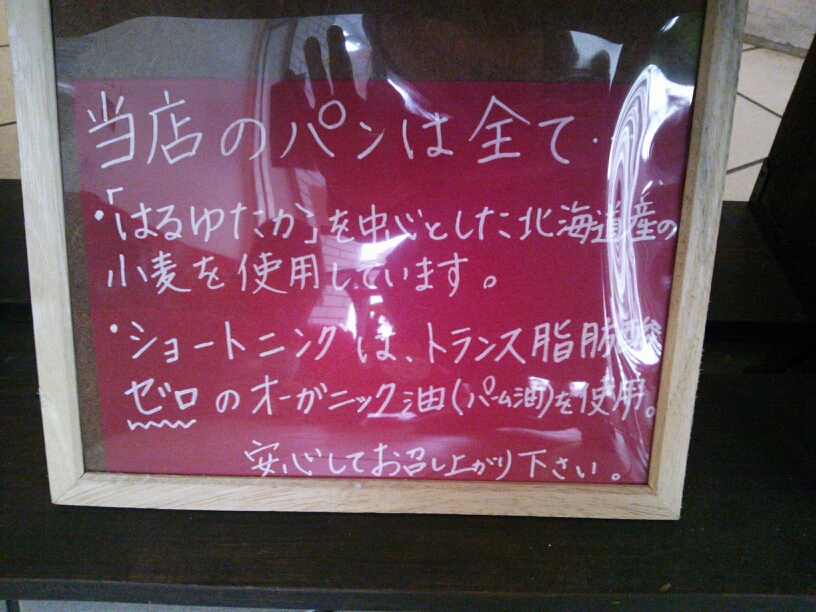 当店のパンは全て・
・「はるゆたか」を中心とした北海道産の
小麦を使用しています。
・ショートニングは、トランス脂肪酸
ゼロのオーガニック油(パーム油)を使用。
安心してお召し上がり下さい。